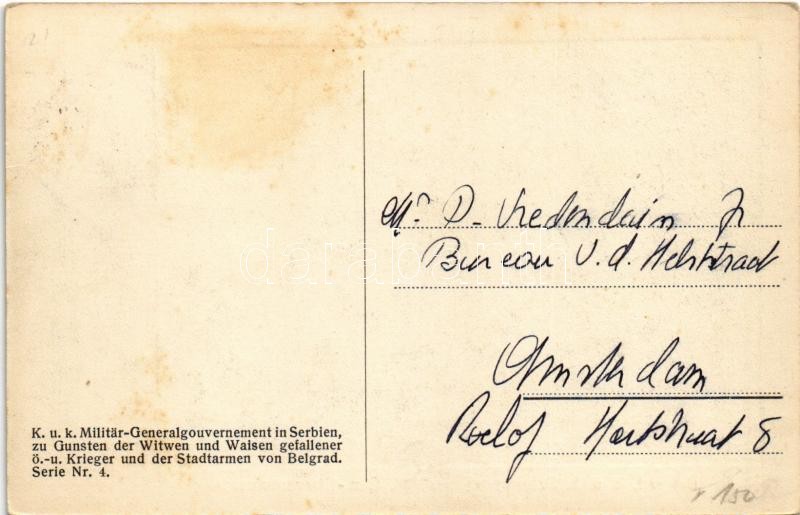 K. u. k. Militär-Generalgouvernement in Serbien,
zu Gunsten der Witwen und Waisen gefallener
ö.-u. Krieger und der Stadtarmen von Belgrad.
Serie Nr. 4.
Mr. D. Vredenduin Jr
Bureau v. d. Helststraat
Amsterdam
Roelof Hartstraat 8
150
darabanth